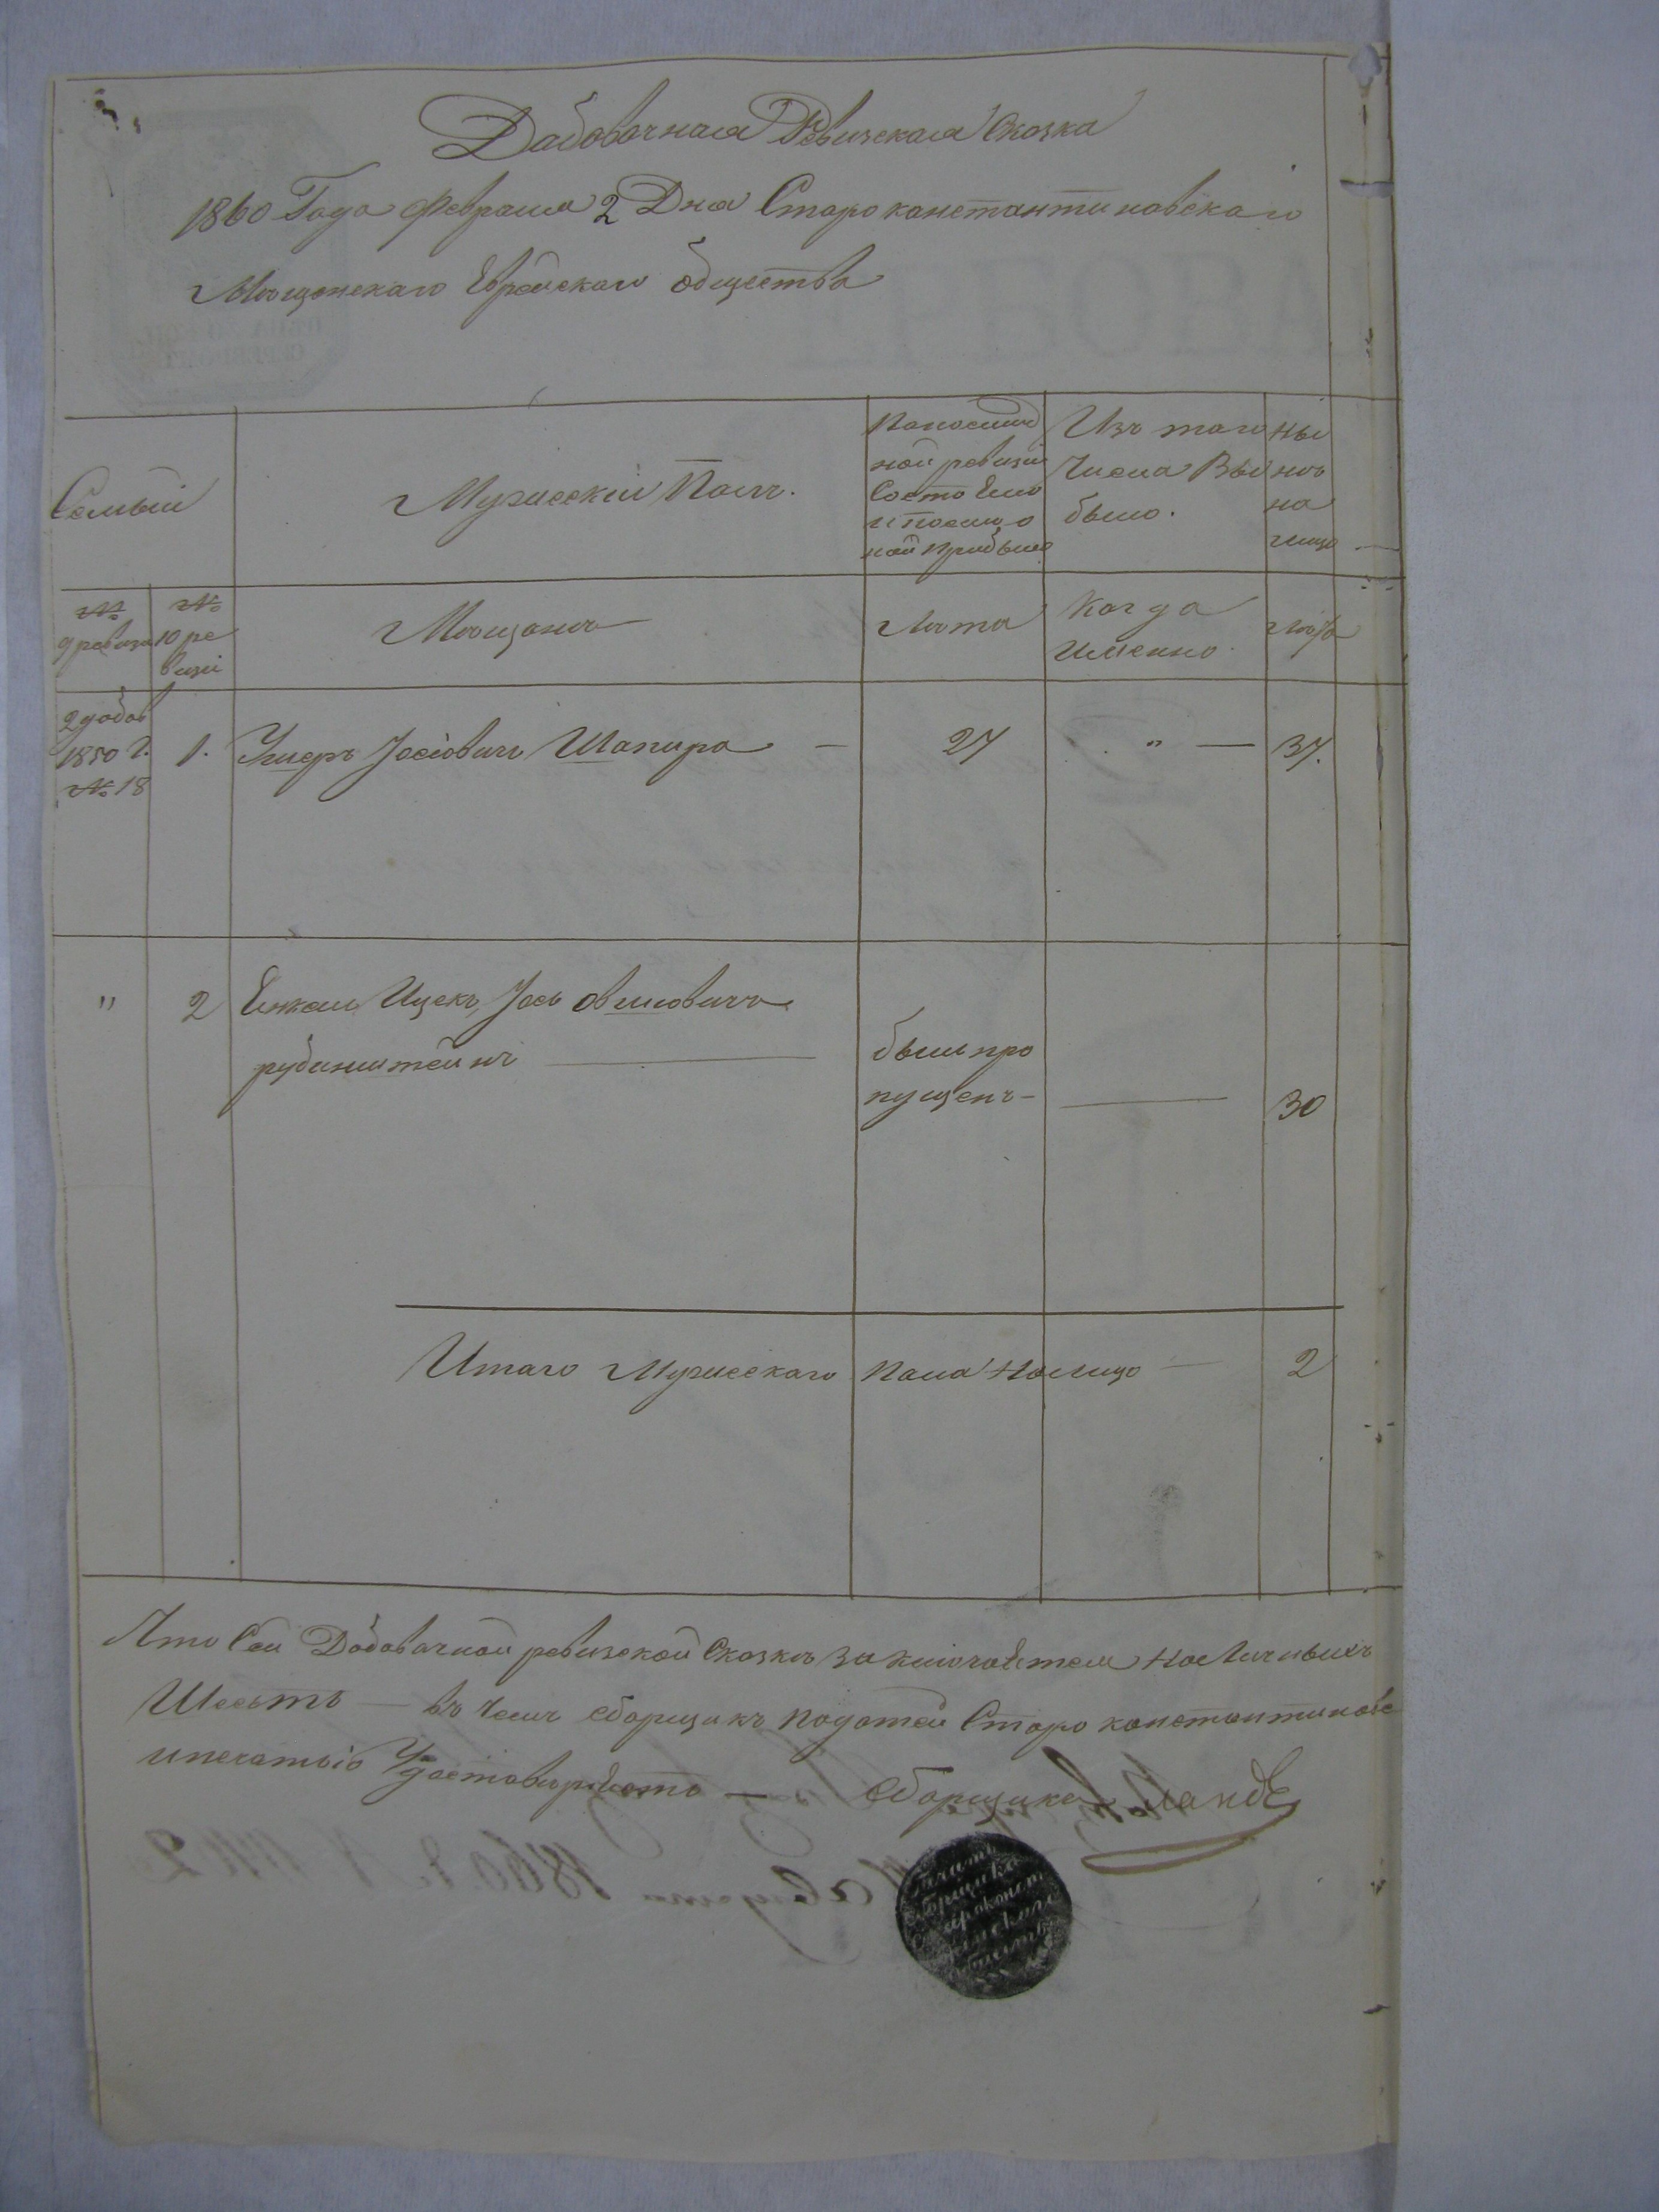 Дабовочная Ревизская Сказка
1860 Года Февраля 2 Дня Староконстантиновскаго
Мещанскаго Еврейскаго общества
Семьи
Мужескій Полъ.
По последней ревизіи Состояло и после оной прибыло
Изъ того Числа Выбыло.
Ныне на лицо
№ 9 ревизіи
№ 10 ревизіи
Мещане
Лета
Когда Именно
Лета
2 добов 1850 г. № 18
1.
Ушеръ Іосіовичъ Шапира —
27
" —
37.
"
2
Ицекъ, Іось Овшіовичъ
рубинштейнъ
былъ пропущенъ —
30
Итаго Мужескаго Пола На лицо — 2
Что Сей Добавочной ревизской Сказке Заключается Наличныхъ
— въ Чемъ сборщикъ податей Староконстантиновс
и печатью Удостоверяетъ — Сборщикъ Ландъ
Печать
Сборщика